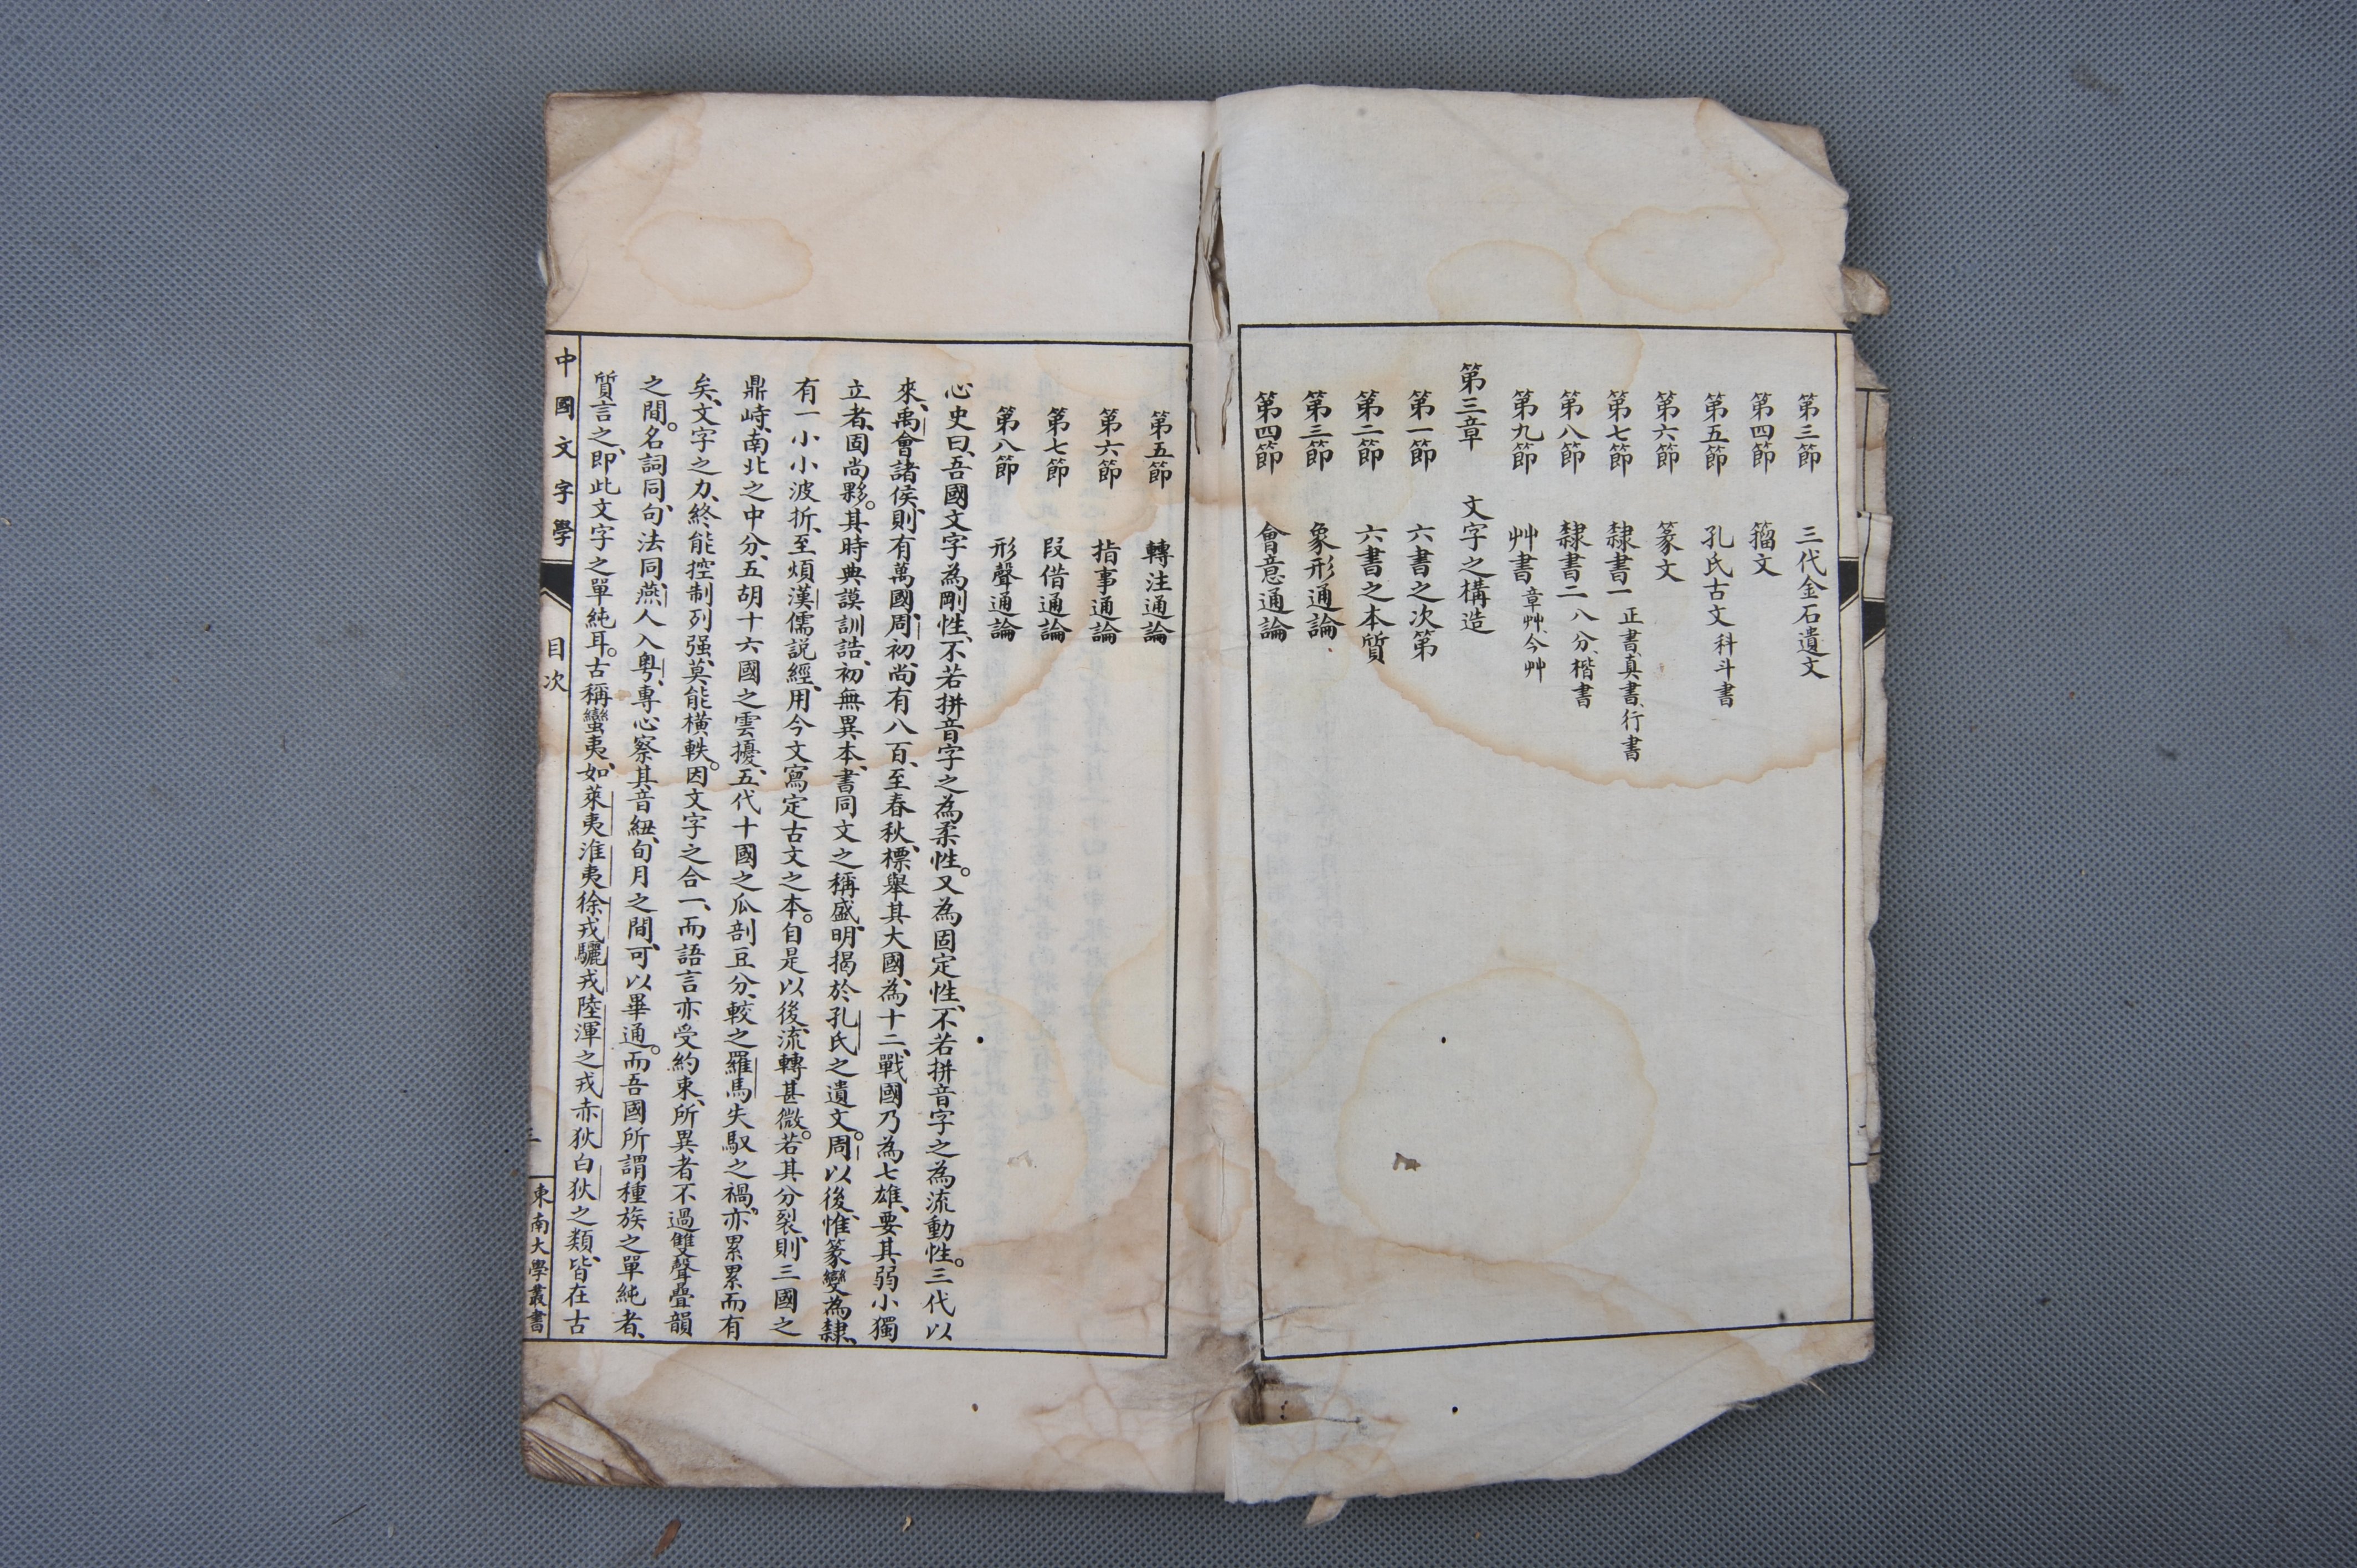 第三節　三代金石遺文
第四節　籀文
第五節　孔氏古文 科斗書
第六節　篆文
第七節　隸書一 正書、真書、行書
第八節　隸書二 八分、楷書
第九節　艸書 章艸、今艸
第三章　文字之構造
第一節　六書之次第
第二節　六書之本質
第三節　象形通論
第四節　會意通論
第五節　轉注通論
第六節　指事通論
第七節　叚借通論
第八節　形聲通論
心史曰、吾國文字為剛性、不若拼音字之為柔性。又為固定性、不若拼音字之為流動性。三代以
來、禹會諸侯、則有萬國、周初、尚有八百、至春秋、標舉其大國、為十二、戰國乃為七雄、要其弱小獨
立者、固尚夥。其時典謨訓誥、初無異本、書同文之稱盛、明揭於孔氏之遺文。周以後、惟篆變為隸、
有一小小波折、至煩漢儒説經、用今文寫定古文之本。自是以後、流轉甚微。若其分裂、則三國之
鼎峙、南北之中分、五胡十六國之雲擾、五代十國之瓜剖豆分、較之羅馬失馭之禍、亦累累而有
矣、文字之力、終能控制列强、莫能横軼。因文字之合一、而語言亦受約束、所異者不過雙聲疊韻
之間。名詞同、句法同、燕人入粤、專心察其音紐、旬月之間、可以畢通。而吾國所謂種族之單純者、
質言之、即此文字之單純耳。古稱蠻夷、如萊夷淮夷徐戎驪戎陸渾之戎赤狄白狄之類、皆在古
中國文字學
目次
東南大學叢書